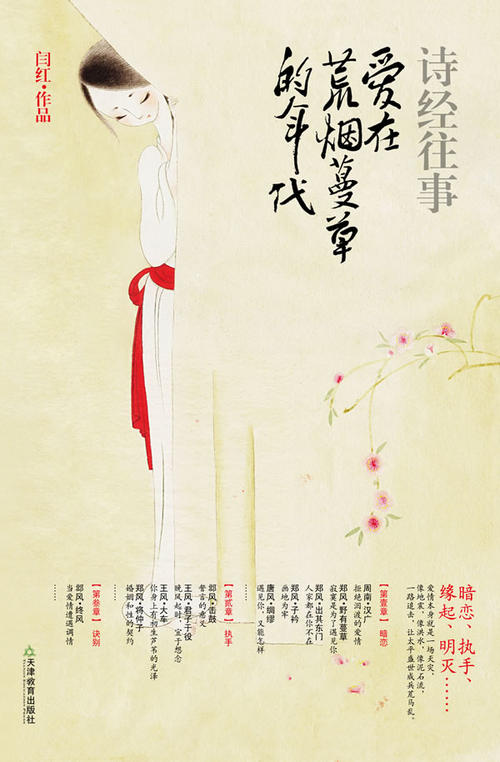 诗经往事
爱在
荒烟蔓草
的年代
闫红·作品
暗恋、执手、
缘起、明灭……
爱情本身就是一场天灾，
像地震，像洪水，像泥石流，
一路退去，让太平盛世成兵荒马乱。
【第壹章】暗恋
周南·汉广
拒绝洄渡的爱情
郑风·野有蔓草
寂寞是为了遇见你
郑风·出其东门
人人都在，你不在
郑风·子衿
画地为牢
唐风·绸缪
遇见你，又能怎样
【第贰章】执手
邶风·击鼓
誓言的意义
王风·君子于役
晚风起时，宜于想念
王风·大车
你身上有初生芦苇的光泽
郑风·将仲子
婚姻和性的契约
【第叁章】诀别
邶风·终风
当爱情遭遇调情
天津教育出版社